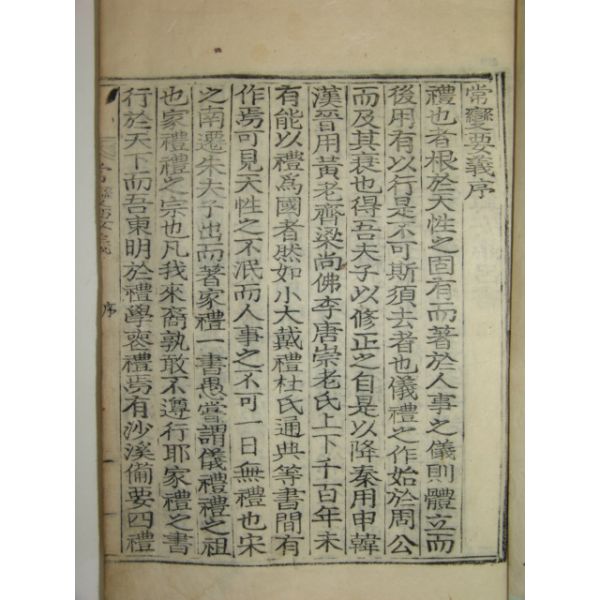 常變要義序
禮也者根於天性之固有而著於人事之儀則體立而
後用有以行是不可斯須去者也儀禮之作始於周公
而及其衰也得吾夫子以修正之自是以降秦用申韓
漢晉用黃老齊梁尚佛李唐崇老氏上下千百年未
有能以禮爲國者然如小大戴禮杜氏通典等書間有
作焉可見天性之不泯而人事之不可一日無禮也宋
之南遷朱夫子出而著家禮一書愚嘗謂儀禮禮之祖
也家禮禮之宗也凡我來裔孰敢不遵行耶家禮之書
行於天下而吾東明於禮學喪禮焉有沙溪備要四禮
序